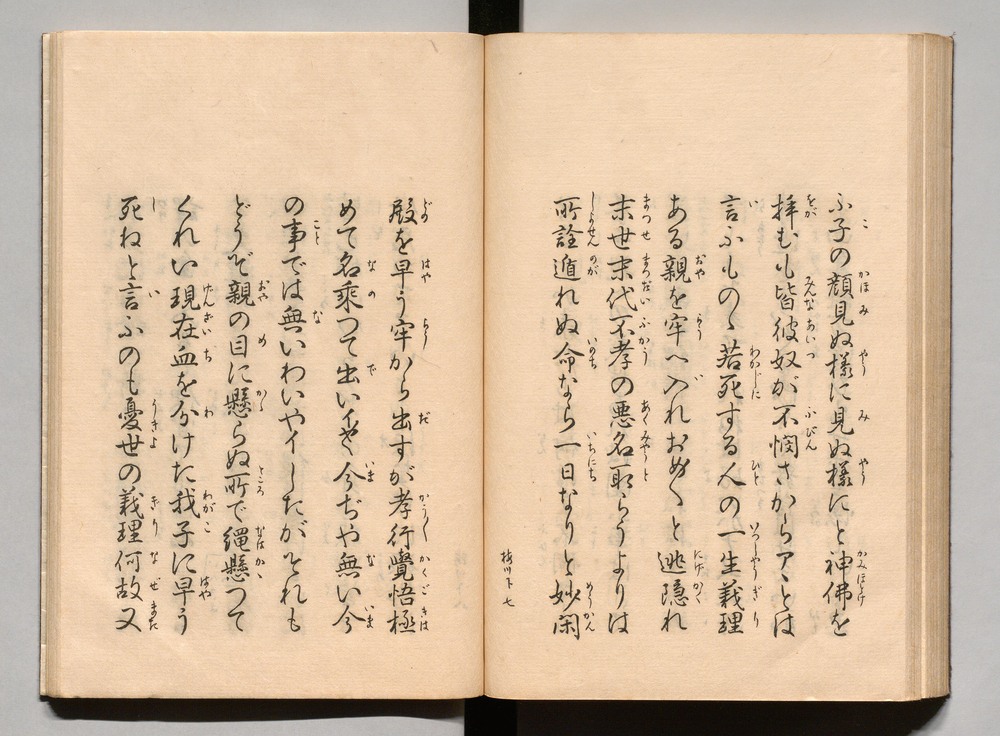 ふ子の顔見ぬ様に見ぬ様にと神佛を
拝むも皆彼奴が不憫さからアヽとは
言ふものゝ若死する人の一生義理
ある親を牢へ入れおめ〳〵と逃隠れ
末世末代不孝の悪名取らうよりは
所詮遁れぬ命なら一日なりと妙閑
梅川下 七
殿を早う牢から出すが孝行覺悟極
めて名乗つて出いイヤ今ぢや無い今
の事では無いわいやイしたがそれも
どうぞ親の目に懸らぬ所で縄懸つて
くれい現在血を分けた我子に早う
死ねと言ふのも憂世の義理何故又